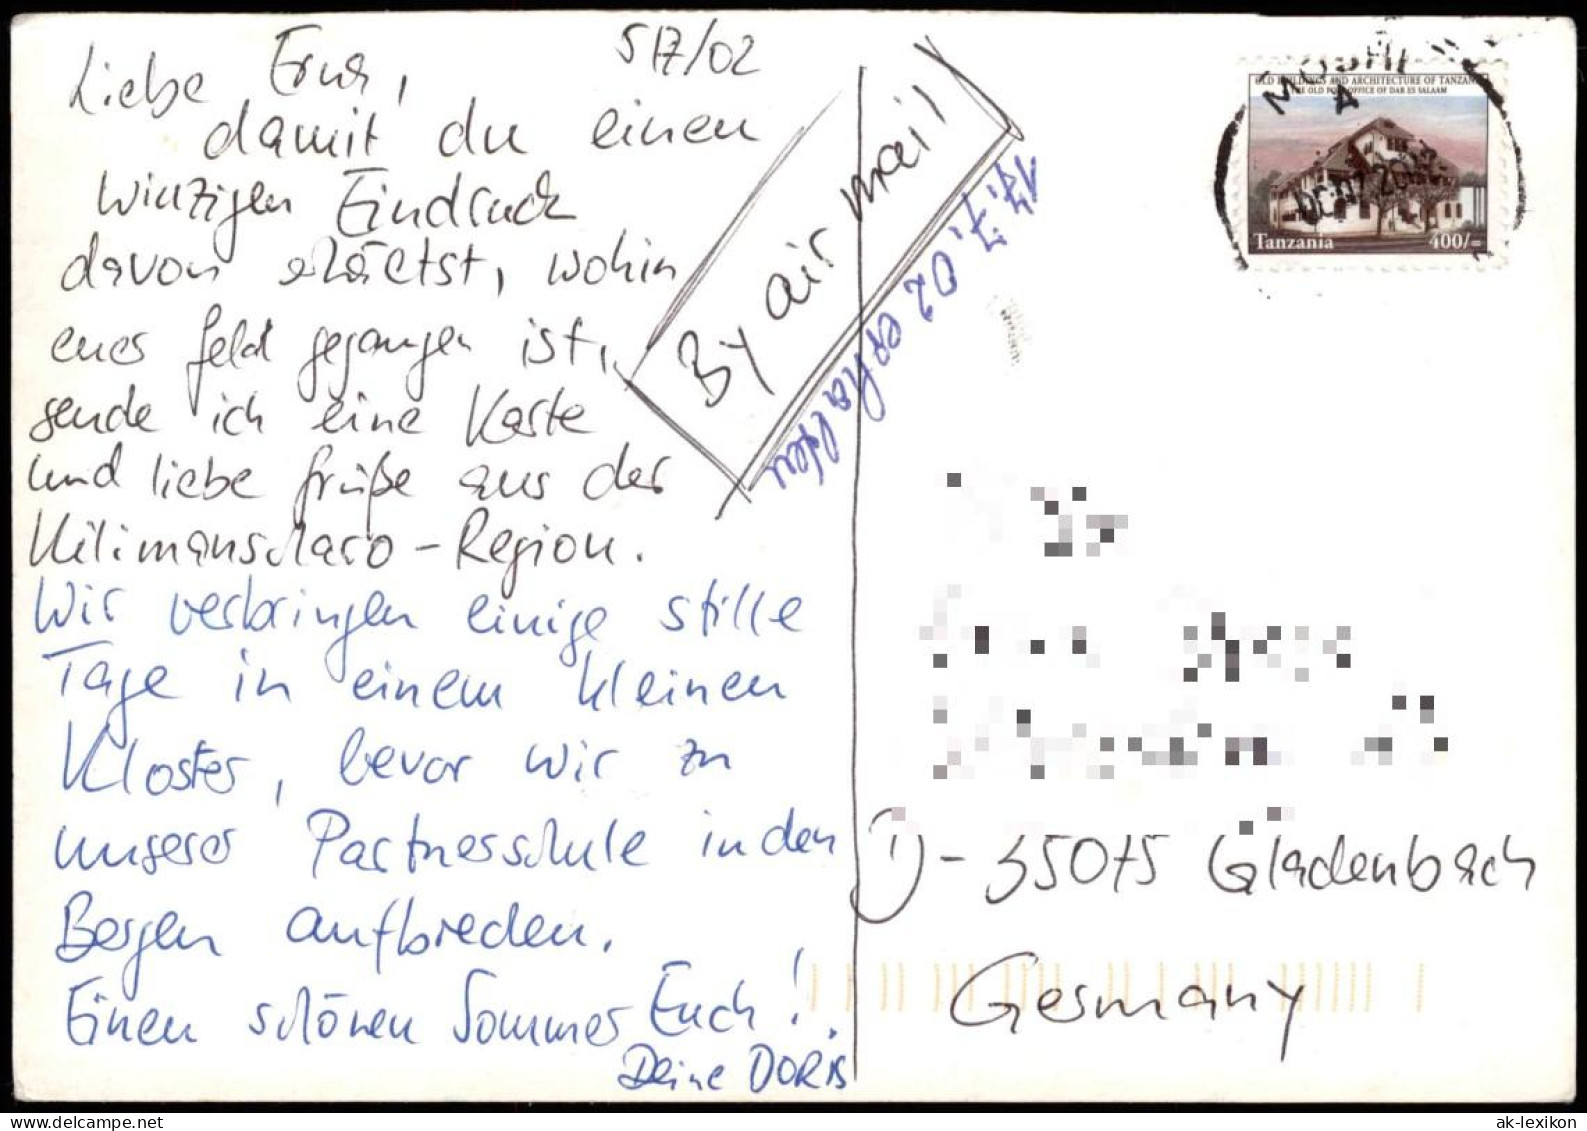 5/7/02
Liebe Erna,
damit du einen
winzigen Eindruck
davon erhältst, wohin
eures Geld gegangen ist,
sende ich eine Karte
und liebe Grüße aus der
Kilimanscharo-Region.
Wir verbringen einige stille
Tage in einem kleinen
Kloster, bevor wir zu
unserer Partnerschule in den
Bergen aufbrechen.
Einen schönen Sommer Euch!
Deine DORIS
By air mail
17.7.02 erhalten
MOSHI
A
OLD BUILDINGS AND ARCHITECTURE OF TANZANIA
THE OLD POST OFFICE OF DAR ES SALAAM
Tanzania 400/=
D-35075 Gladenbach
Germany
ak-lexikon